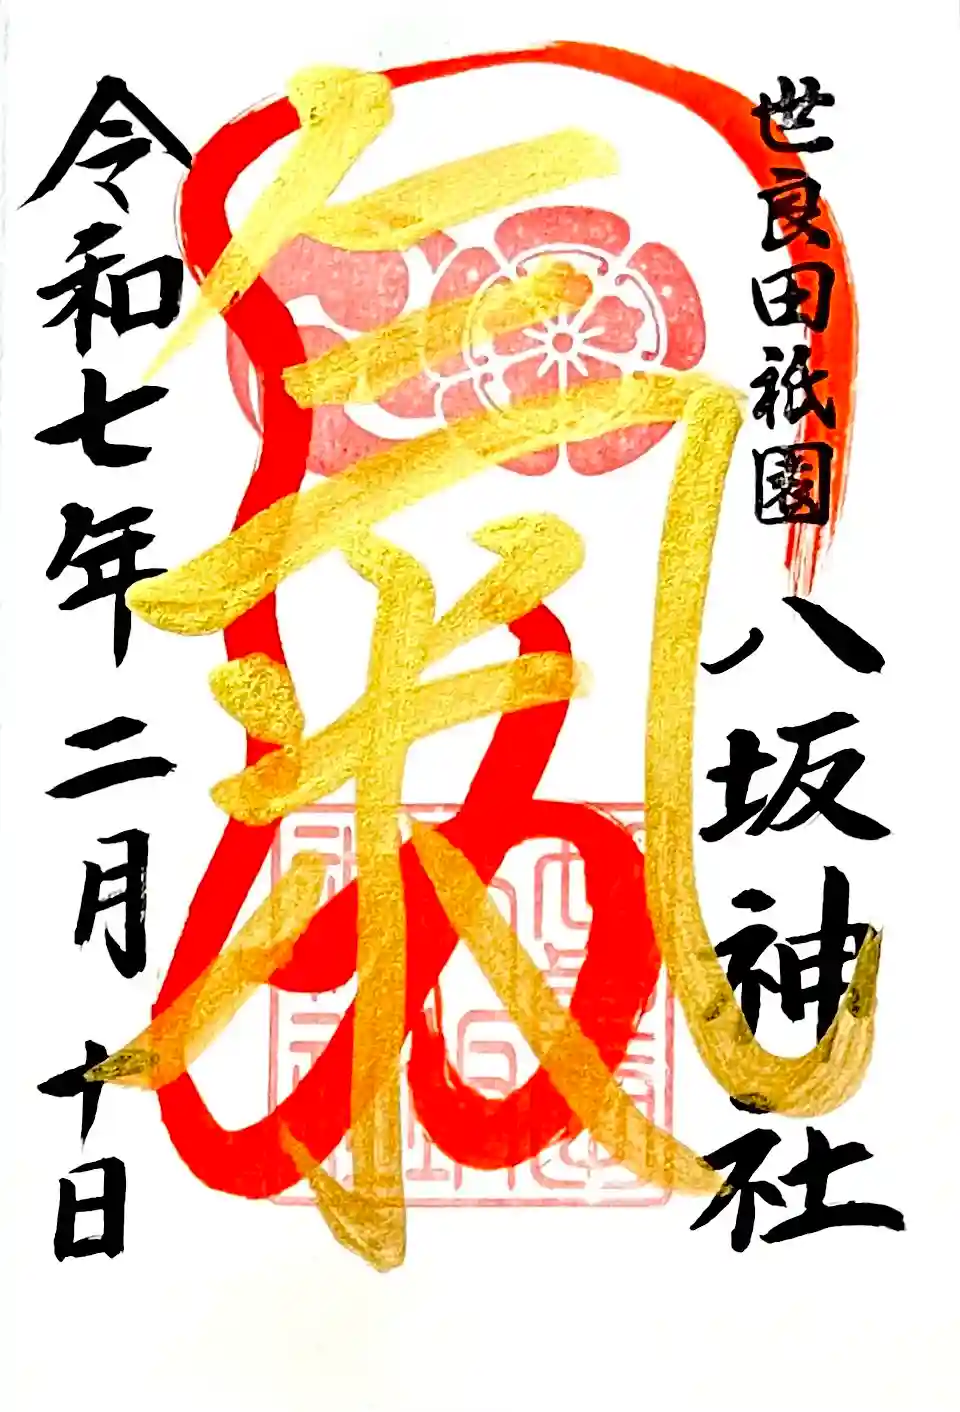 世良田祇園
八坂神社
氣
令和七年二月十日